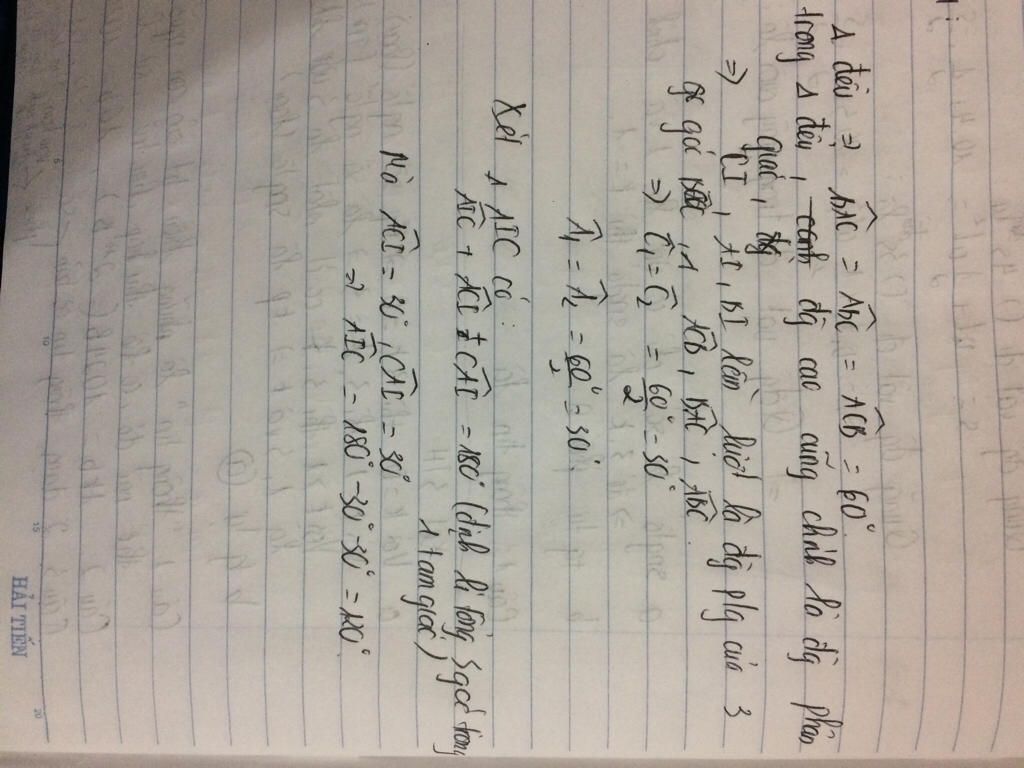 Δ đều ⇒ BAC = ABC = ACB = 60°.
trong Δ đều, cạnh đg cao cũng chính là đg phân
giác, đg
⇒ CI, AI, BI lần lượt là đg p/g của 3
góc ACB, BAC, ABC.
⇒ C1 = C2 = 60°/2 = 30°
A1 = A2 = 60°/2 = 30°.
Xét Δ AIC có:
AIC + ACI + CAI = 180° (định lí tổng 3 góc trong
1 tam giác)
Mà ACI = 30°, CAI = 30°
⇒ AIC = 180° - 30° - 30° = 120°.
HẢI TIẾN
5
10
15
20